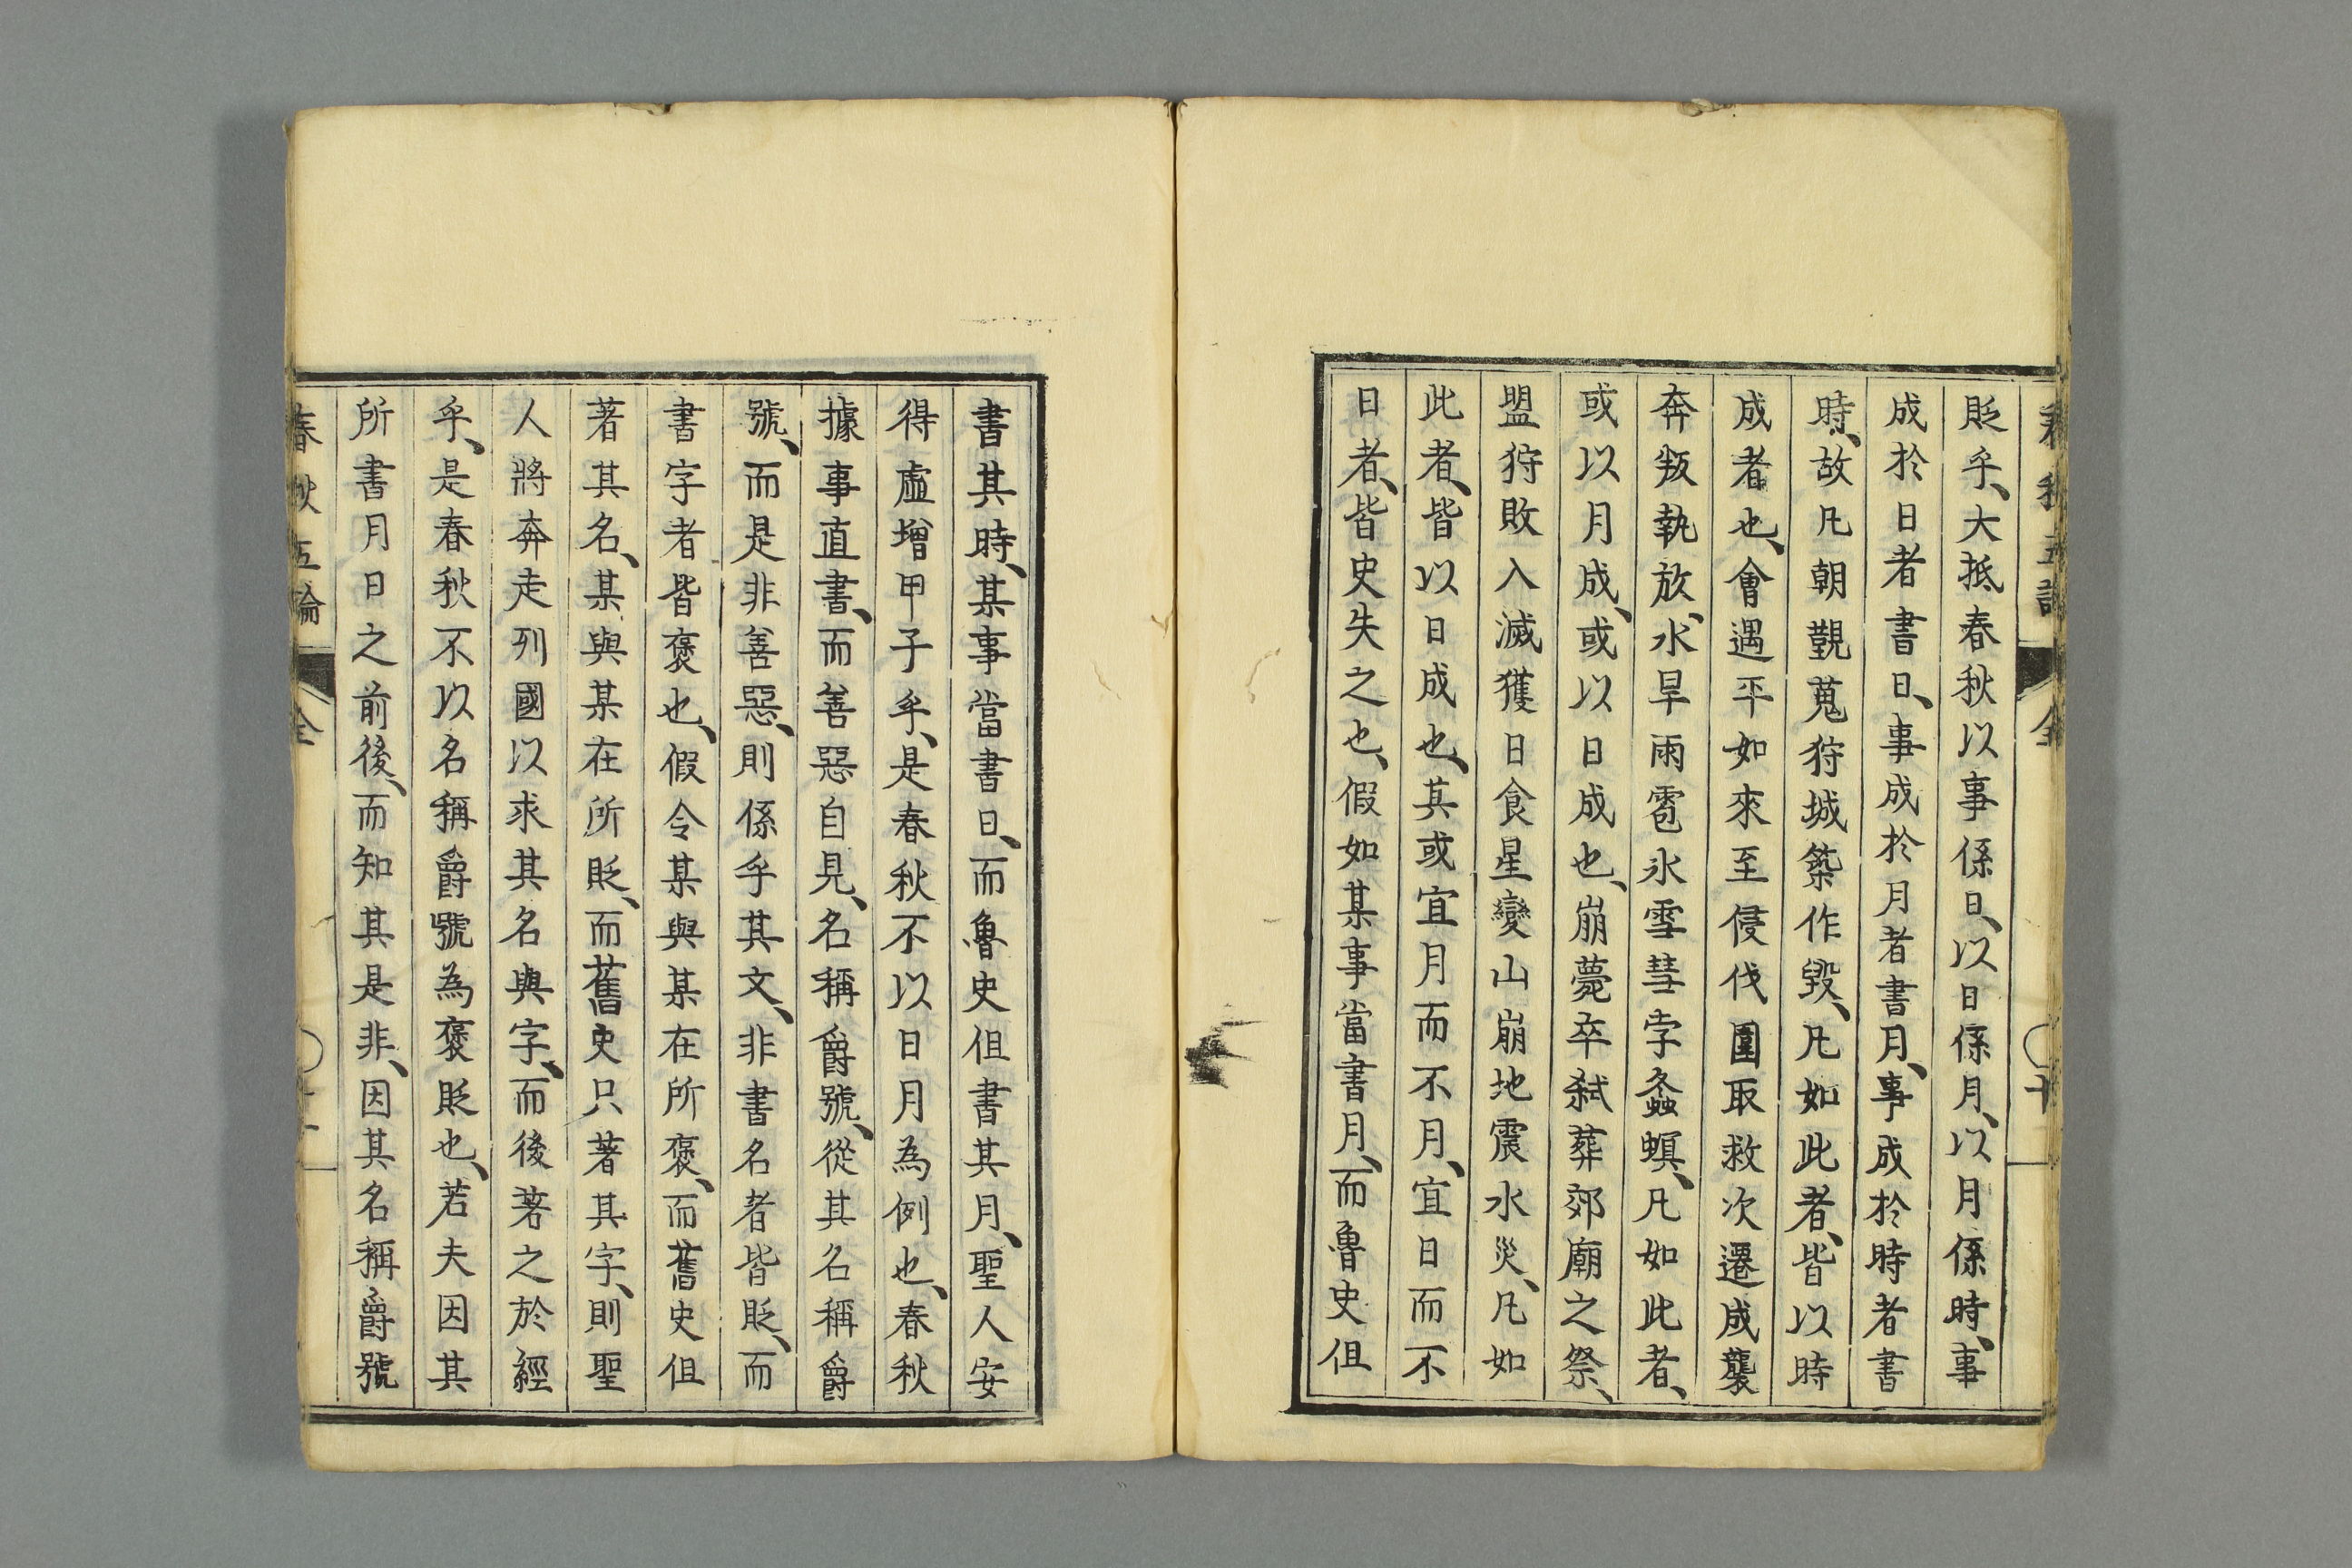 春秋五論 全 十
貶乎、大抵春秋以事係日、以日係月、以月係時、事
成於日者書日、事成於月者書月、事成於時者書
時、故凡朝覲蒐狩城築作毀、凡如此者、皆以時
成者也、會遇平如來至侵伐圍取救次遷戍襲
奔叛執放、水旱雨雹氷雪彗孛螽螟、凡如此者、
或以月成、或以日成也、崩薨卒弑葬郊廟之祭、
盟狩敗入滅獲日食星變山崩地震水災、凡如
此者、皆以日成也、其或宜月而不月、宜日而不
日者、皆史失之也、假如某事當書月、而魯史但
書其時、某事當書日、而魯史但書其月、聖人安
得虛增甲子乎、是春秋不以日月為例也、春秋
據事直書、而善惡自見、名稱爵號、從其名稱爵
號、而是非善惡、則係乎其文、非書名者皆貶、而
書字者皆褒也、假令某與某在所褒、而舊史但
著其名、某與某在所貶、而舊史只著其字、則聖
人將奔走列國以求其名與字、而後著之於經
乎、是春秋不以名稱爵號為褒貶也、若夫因其
所書月日之前後、而知其是非、因其名稱爵號
春秋五論 全